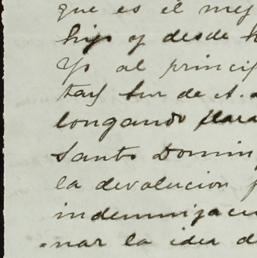 que es el mej
hijo y desde h
Yo al princip
tas sur de A.
longando para
Santo Doming
la devolucion p
indemnizaci
nar la idea d